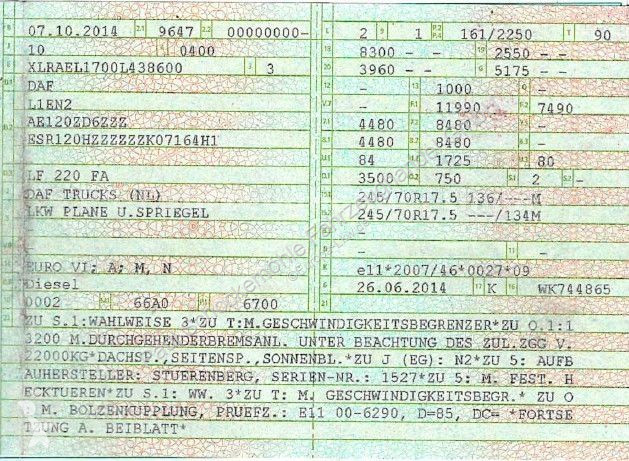 B 07.10.2014 2.1 9647 2.2 00000000-
J 10 4 0400
E XLRAEL1700L438600 3 3
D.1 DAF
L1EN2
D.2 AE120ZD6ZZZ
ESR120HZZZZZZK07164H1
LF 220 FA
DAF TRUCKS (NL)
LKW PLANE U.SPRIEGEL
-
-
EURO VI; A; M, N
Diesel
0002 66A0 6700
L 2 9 1 P.2 P.4 161/2250 T 90
18 8300 - - 19 2550 - -
20 3960 - - G 5175 - -
12 - 13 1000 Q -
V.7 - F.1 11990 F.2 7490
7.1 4480 7.2 8480 7.3 -
8.1 4480 8.2 8480 8.3 -
U.1 84 U.2 1725 U.3 80
O.1 3500 O.2 750 S.1 2 S.2 -
15.1 245/70R17.5 136/---M
15.2 245/70R17.5 ---/134M
15.3 -
R - 11 -
K e11*2007/46*0027*09
6 26.06.2014 17 K 16 WK744865
21
22 ZU S.1:WAHLWEISE 3*ZU T:M.GESCHWINDIGKEITSBEGRENZER*ZU O.1:1
3200 M.DURCHGEHENDERBREMSANL. UNTER BEACHTUNG DES ZUL.ZGG V.
22000KG*DACHSP.,SEITENSP.,SONNENBL.*ZU J (EG): N2*ZU 5: AUFB
AUHERSTELLER: STUERENBERG, SERIEN-NR.: 1527*ZU 5: M. FEST. H
ECKTUEREN*ZU S.1: WW. 3*ZU T: M. GESCHWINDIGKEITSBEGR.* ZU O
M. BOLZENKUPPLUNG, PRUEFZ.: E11 00-6290, D=85, DC= *FORTSE
TZUNG A. BEIBLATT*